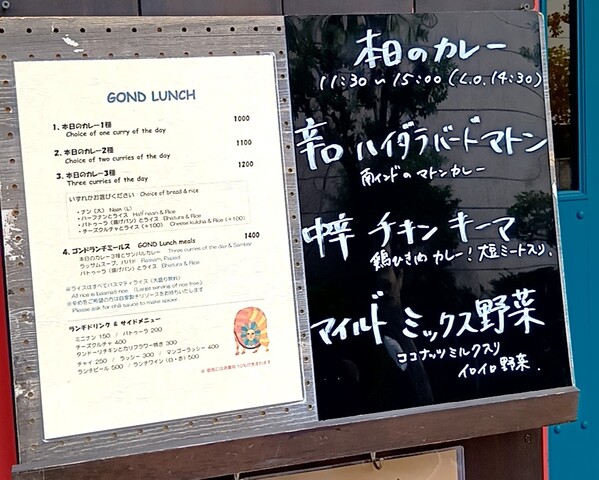 GOND LUNCH
1. 本日のカレー1種 1000
Choice of one curry of the day
2. 本日のカレー2種 1100
Choice of two curries of the day
3. 本日のカレー3種 1200
Three curries of the day
いずれかお選びください Choice of bread & rice
・ナン(大) Naan (L)
・ハーフナンとライス Half naan & Rice
・バトゥーラ(揚げパン)とライス Bhatura & Rice
・チーズクルチャとライス(+100) Cheese kulcha & Rice (+100)
4. ゴンドランチミールス GOND Lunch meals 1400
本日のカレー3種とサンバルカレー Three curries of the day & Sambar
ラッサムスープ、パパド Rassam, Papad
バトゥーラ(揚げパン)とライス Bhatura & Rice
※ライスはすべてバスマティライス(大盛り無料)
All rice is basmati rice (Large serving of rice free)
※辛めをご希望の方は自家製チリソースをお持ちいたします
Please ask for chili sauce to make spicier
ランチドリンク & サイドメニュー
ミニナン 150 / バトゥーラ 200
チーズクルチャ 400
タンドーリチキンとカリフラワー焼き 300
チャイ 250 / ラッシー 300 / マンゴーラッシー 400
ランチビール 500 / ランチワイン(白・赤) 500
本日のカレー
11:30〜15:00 (L.O. 14:30)
辛口 ハイダラバードマトン
南インドのマトンカレー
中辛 チキンキーマ
鶏ひき肉カレー!大豆ミート入り、
マイルド ミックス野菜
ココナッツミルク入り
イロイロ野菜.